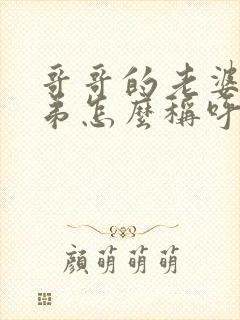 哥哥的老婆
弟怎麼稱呼
顏萌萌萌